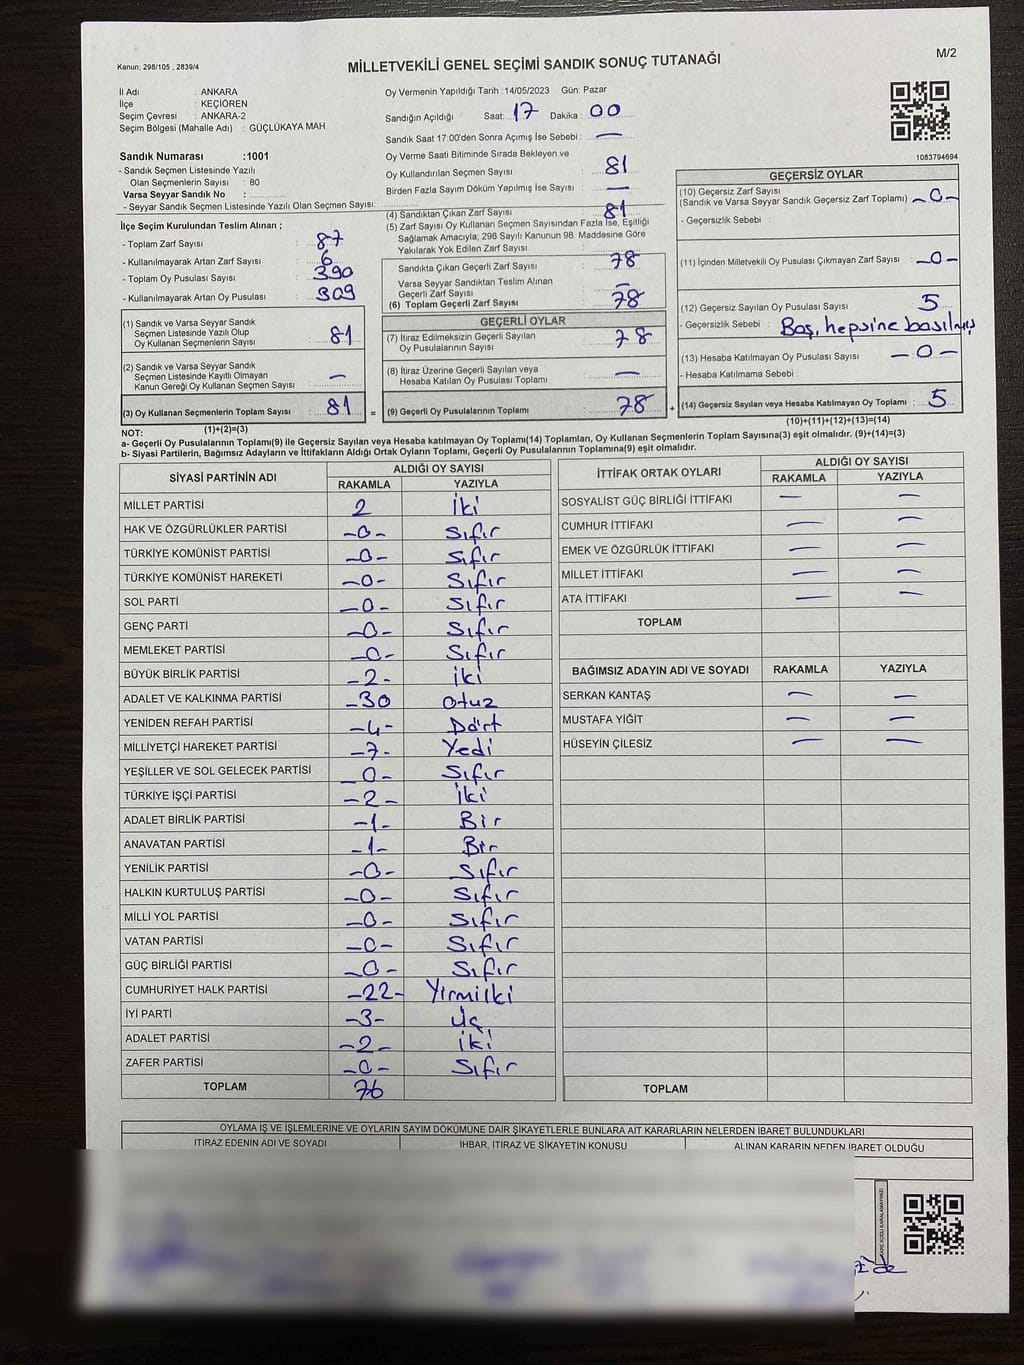 Kanun; 298/105 , 2839/4
MİLLETVEKİLİ GENEL SEÇİMİ SANDIK SONUÇ TUTANAĞI
M/2
İl Adı : ANKARA
İlçe : KEÇİÖREN
Seçim Çevresi : ANKARA-2
Seçim Bölgesi (Mahalle Adı) : GÜÇLÜKAYA MAH.
Sandık Numarası :1001
- Sandık Seçmen Listesinde Yazılı
Olan Seçmenlerin Sayısı : 80
Varsa Seyyar Sandık No :
- Seyyar Sandık Seçmen Listesinde Yazılı Olan Seçmen Sayısı:
İlçe Seçim Kurulundan Teslim Alınan ;
- Toplam Zarf Sayısı : 87
- Kullanılmayarak Artan Zarf Sayısı : 6
- Toplam Oy Pusulası Sayısı : 390
- Kullanılmayarak Artan Oy Pusulası : 309
(1) Sandık ve Varsa Seyyar Sandık
Seçmen Listesinde Yazılı Olup
Oy Kullanan Seçmenlerin Sayısı : 81
(2) Sandık ve Varsa Seyyar Sandık
Seçmen Listesinde Kayıtlı Olmayan
Kanun Gereği Oy Kullanan Seçmen Sayısı : —
(3) Oy Kullanan Seçmenlerin Toplam Sayısı : 81 =
(1)+(2)=(3)
Oy Vermenin Yapıldığı Tarih :14/05/2023 Gün: Pazar
Sandığın Açıldığı Saat: 17 Dakika : 00
Sandık Saat 17:00'den Sonra Açımış İse Sebebi : —
Oy Verme Saati Bitiminde Sırada Bekleyen ve
Oy Kullandırılan Seçmen Sayısı : 81
Birden Fazla Sayım Döküm Yapılmış İse Sayısı : —
(4) Sandıktan Çıkan Zarf Sayısı : 81
(5) Zarf Sayısı Oy Kullanan Seçmen Sayısından Fazla İse, Eşitliği
Sağlamak Amacıyla, 298 Sayılı Kanunun 98. Maddesine Göre
Yakılarak Yok Edilen Zarf Sayısı :
Sandıkta Çıkan Geçerli Zarf Sayısı : 78
Varsa Seyyar Sandıktan Teslim Alınan
Geçerli Zarf Sayısı : —
(6) Toplam Geçerli Zarf Sayısı : 78
GEÇERLİ OYLAR
(7) İtiraz Edilmeksizin Geçerli Sayılan
Oy Pusulalarının Sayısı : 78
(8) İtiraz Üzerine Geçerli Sayılan veya
Hesaba Katılan Oy Pusulası Toplamı : —
(9) Geçerli Oy Pusulalarının Toplamı : 78 +
1083794694
GEÇERSİZ OYLAR
(10) Geçersiz Zarf Sayısı
(Sandık ve Varsa Seyyar Sandık Geçersiz Zarf Toplamı) : —0—
- Geçersizlik Sebebi :
(11) İçinden Milletvekili Oy Pusulası Çıkmayan Zarf Sayısı : —0—
(12) Geçersiz Sayılan Oy Pusulası Sayısı : 5
- Geçersizlik Sebebi : Boş, hepsine basılmış
(13) Hesaba Katılmayan Oy Pusulası Sayısı : —0—
- Hesaba Katılmama Sebebi :
(14) Geçersiz Sayılan veya Hesaba Katılmayan Oy Toplamı : 5
(10)+(11)+(12)+(13)=(14)
NOT:
a- Geçerli Oy Pusulalarının Toplamı(9) ile Geçersiz Sayılan veya Hesaba katılmayan Oy Toplamı(14) Toplamları, Oy Kullanan Seçmenlerin Toplam Sayısına(3) eşit olmalıdır. (9)+(14)=(3)
b- Siyasi Partilerin, Bağımsız Adayların ve İttifakların Aldığı Ortak Oyların Toplamı, Geçerli Oy Pusulalarının Toplamına(9) eşit olmalıdır.
SİYASİ PARTİNİN ADI ALDIĞI OY SAYISI
RAKAMLA YAZIYLA
MİLLET PARTİSİ 2 İki
HAK VE ÖZGÜRLÜKLER PARTİSİ -0- Sıfır
TÜRKİYE KOMÜNİST PARTİSİ -0- Sıfır
TÜRKİYE KOMÜNİST HAREKETİ -0- Sıfır
SOL PARTİ -0- Sıfır
GENÇ PARTİ -0- Sıfır
MEMLEKET PARTİSİ -0- Sıfır
BÜYÜK BİRLİK PARTİSİ -2- İki
ADALET VE KALKINMA PARTİSİ -30 Otuz
YENİDEN REFAH PARTİSİ -4- Dört
MİLLİYETÇİ HAREKET PARTİSİ -7- Yedi
YEŞİLLER VE SOL GELECEK PARTİSİ -0- Sıfır
TÜRKİYE İŞÇİ PARTİSİ -2- İki
ADALET BİRLİK PARTİSİ -1- Bir
ANAVATAN PARTİSİ -1- Bir
YENİLİK PARTİSİ -0- Sıfır
HALKIN KURTULUŞ PARTİSİ -0- Sıfır
MİLLİ YOL PARTİSİ -0- Sıfır
VATAN PARTİSİ -0- Sıfır
GÜÇ BİRLİĞİ PARTİSİ -0- Sıfır
CUMHURİYET HALK PARTİSİ -22- Yirmiİki
İYİ PARTİ -3- Üç
ADALET PARTİSİ -2- İki
ZAFER PARTİSİ -0- Sıfır
TOPLAM 76
İTTİFAK ORTAK OYLARI ALDIĞI OY SAYISI
RAKAMLA YAZIYLA
SOSYALİST GÜÇ BİRLİĞİ İTTİFAKI — —
CUMHUR İTTİFAKI — —
EMEK VE ÖZGÜRLÜK İTTİFAKI — —
MİLLET İTTİFAKI — —
ATA İTTİFAKI — —
TOPLAM
BAĞIMSIZ ADAYIN ADI VE SOYADI RAKAMLA YAZIYLA
SERKAN KANTAŞ — —
MUSTAFA YİĞİT — —
HÜSEYİN ÇİLESİZ — —
TOPLAM
OYLAMA İŞ VE İŞLEMLERİNE VE OYLARIN SAYIM DÖKÜMÜNE DAİR ŞİKAYETLERLE BUNLARA AİT KARARLARIN NELERDEN İBARET BULUNDUKLARI
İTİRAZ EDENİN ADI VE SOYADI İHBAR, İTİRAZ VE ŞİKAYETİN KONUSU ALINAN KARARIN NEDEN İBARET OLDUĞU